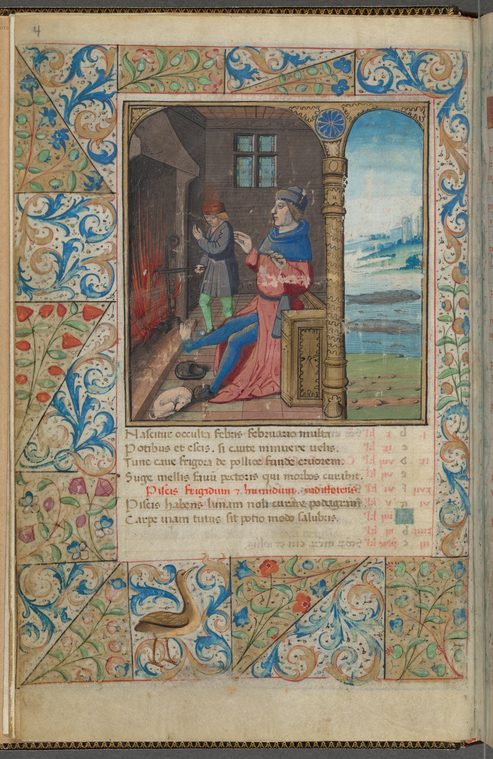 4
Nascitur occulta febris februario multa
Potibus et escis. si caute minuere uelis.
Tunc caue frigora de pollice funde cruorem.
Suge mellis fauū pectoris qui morbos curabit.
Piscis frigidum ⁊ humidum. indifferens.
Piscis habens lunam noli curare podagram
Carpe uiam tutus sit potio modo salubris.